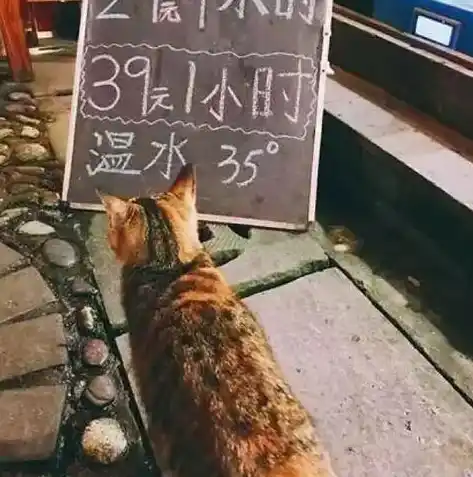 2元1小时
39元1小时
温水 35°